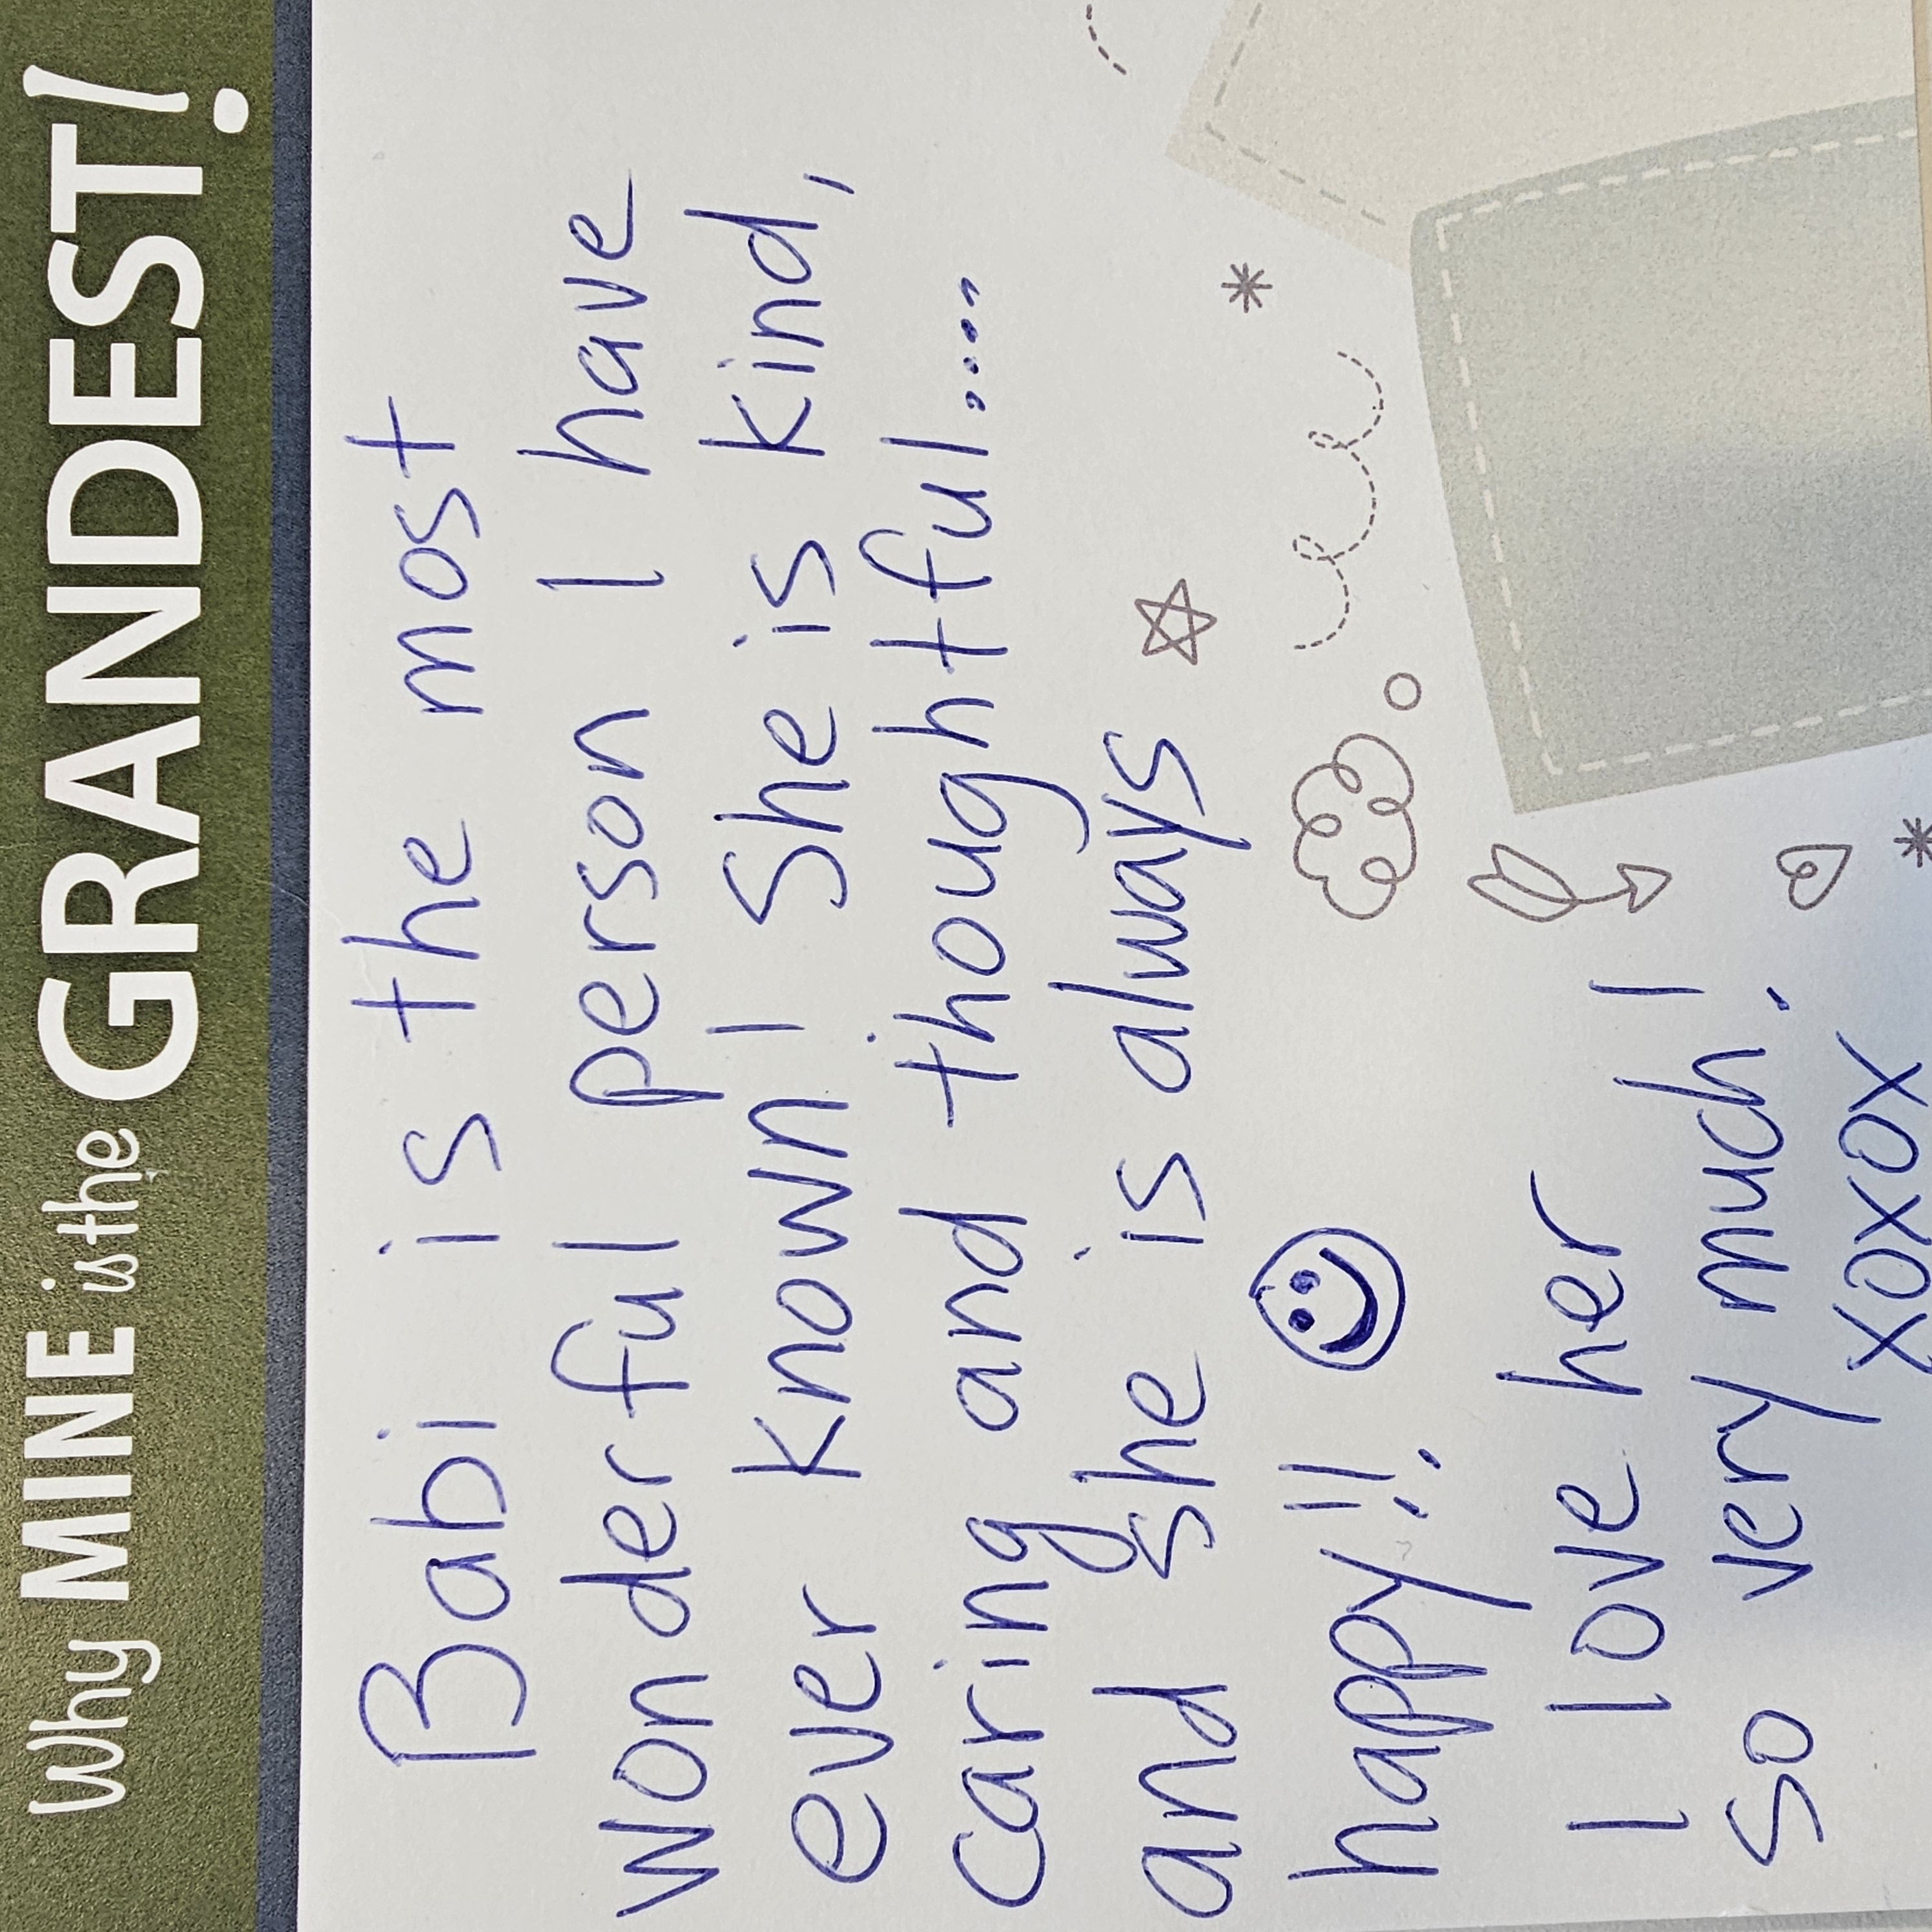 Why MINE is the GRANDEST!
Babi is the most
wonderful person I have
ever known! She is kind,
caring and thoughtful....
and she is always
happy!!
I love her
so very much!
xoxox